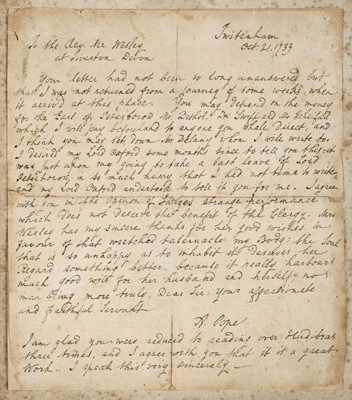 Twitenham
Oct. 21. 1733
To the Rev. Mr Wesley
at Tiverton Devon
Your letter had not been so long unanswered but
that I was not returned from a journey of some weeks when
it arrived at this place. You may depend on the money
for the Earl of Peterborow Mr Bethel, Dr Swift and Mr
which I will pay beforehand to any one you shall direct, and
I think you may set down Dr Delany whom I will write to.
I desired my Lord Oxford some months since to tell you this; it
was just upon my going to take a last leave of Lord
Peterborow in so much hurry that I had not time to write
and my Lord Oxford undertook to tell it you for me. I agree
with you in the Opinion of Savages strange performance
which does not deserve the benefit of the Clergy. Mrs
Wesley has my sincere thanks for her good wishes in
favour of that wretched tabernacle my Body; the Soul
that is so unhappy as to inhabit it deserves her
Regard something better, because it really harbours
much good will for her husband and herself; no
man being more truly, Dear Sir Your affectionate
and faithful Servant
A. Pope
I am glad you were reduced to reading over Hudibras
three times, and I agree with you that it is a great
Work. I speak this very sincerely